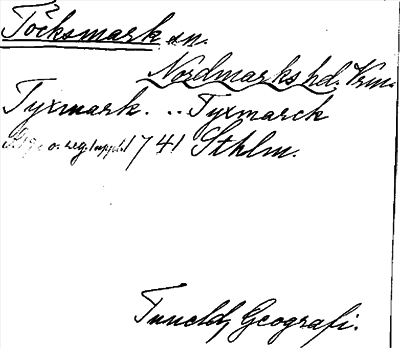 Töcksmark sn.
Nordmarks hd. Vrm.
Tyxmark. .. Tyxmarck
o. reg. 1741 Sthlm.
Tuneld, Geografi.